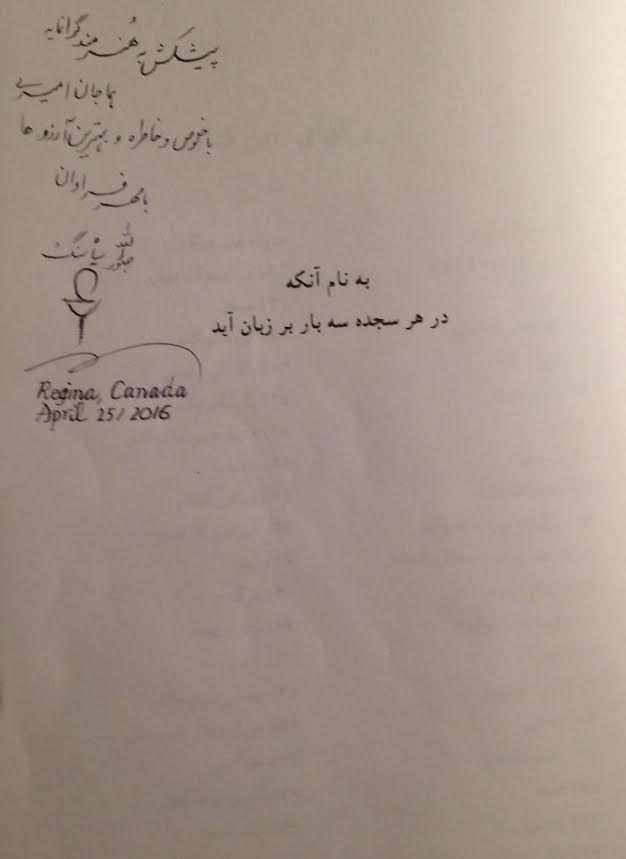 پیشکش به هُنرمند گرانمایه
هما جان امیری
با خلوص و خاطره و بهترین آرزو ها
با مهر فراوان
به نام آنکه
در هر سجده سه بار بر زبان آید
Regina, Canada
April 25/2016